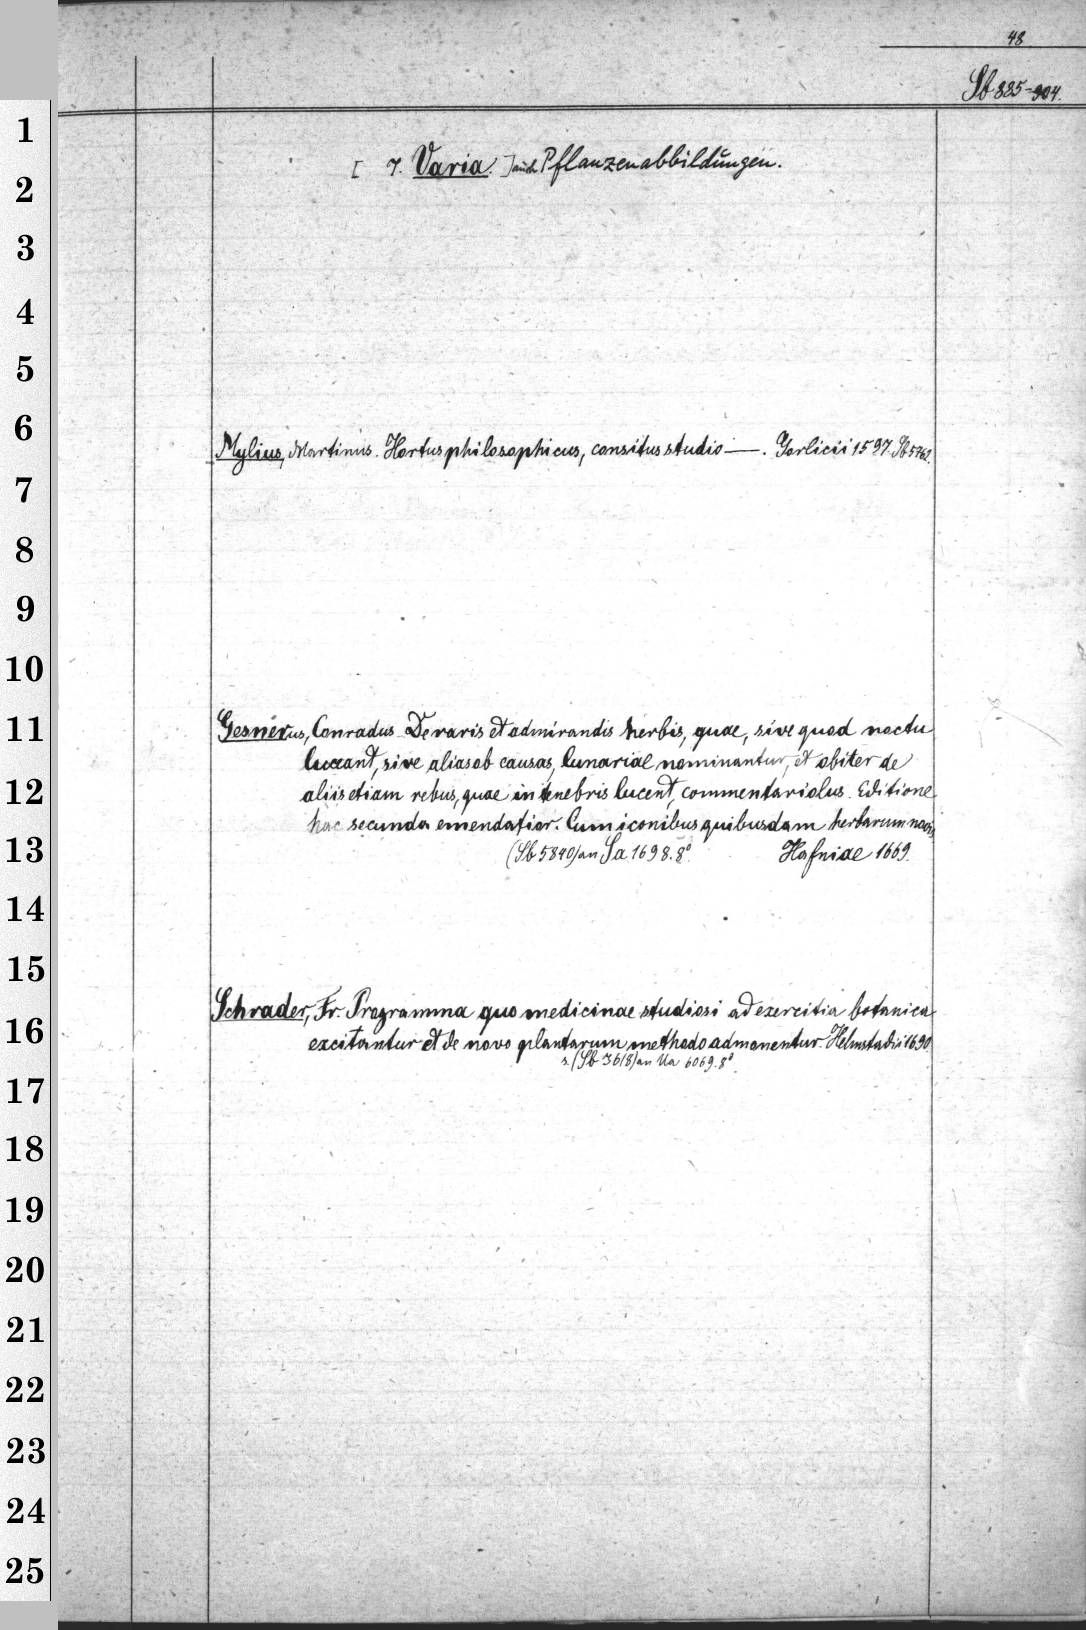 48
Sb 885-904.
[ 7. Varia. ] auch Pflanzenabbildungen.
Mylius, Martinus. Hortus philosophicus, consitus studio —. Gorlicii 1597. Sb 5762.
Gesnerus, Conradus. De raris et admirandis herbis, quae, sive quod noctu
luceant, sive alias ob causas, lunariae nominantur, et obiter de
aliis etiam rebus, quae in tenebris lucent, commentariolus. Editione
hac secunda emendatior. Cum iconibus quibusdam herbarum novis
(Sb 5840) an Sa 1698. 8° Hafniae 1669.
Schrader, Fr. Programma quo medicinae studiosi ad exercitia botanica
excitantur et de novo plantarum methodo admonentur. Helmstadii 1690
s. (Sb 3618) an Ua 6069. 8°.
1
2
3
4
5
6
7
8
9
10
11
12
13
14
15
16
17
18
19
20
21
22
23
24
25